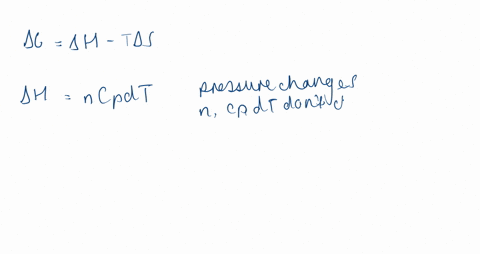 ΔG = ΔH - TΔS
ΔH = nCpdT
pressure changes
n, cpdT don't